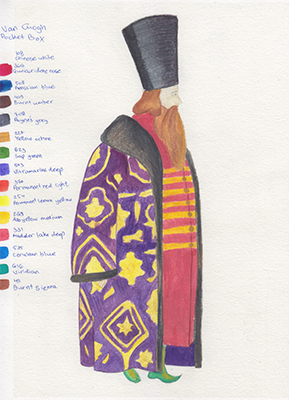 Van Gogh
Pocket Box
108
Chinese white
366
Quinacridone rose
508
Prussian blue
409
Burnt umber
708
Payne's grey
227
Yellow ochre
623
Sap green
505
Ultramarine deep
370
Permanent red light
254
Permanent lemon yellow
269
Azo yellow medium
331
Madder lake deep
535
Cerulean blue
616
Viridian
411
Burnt Sienna